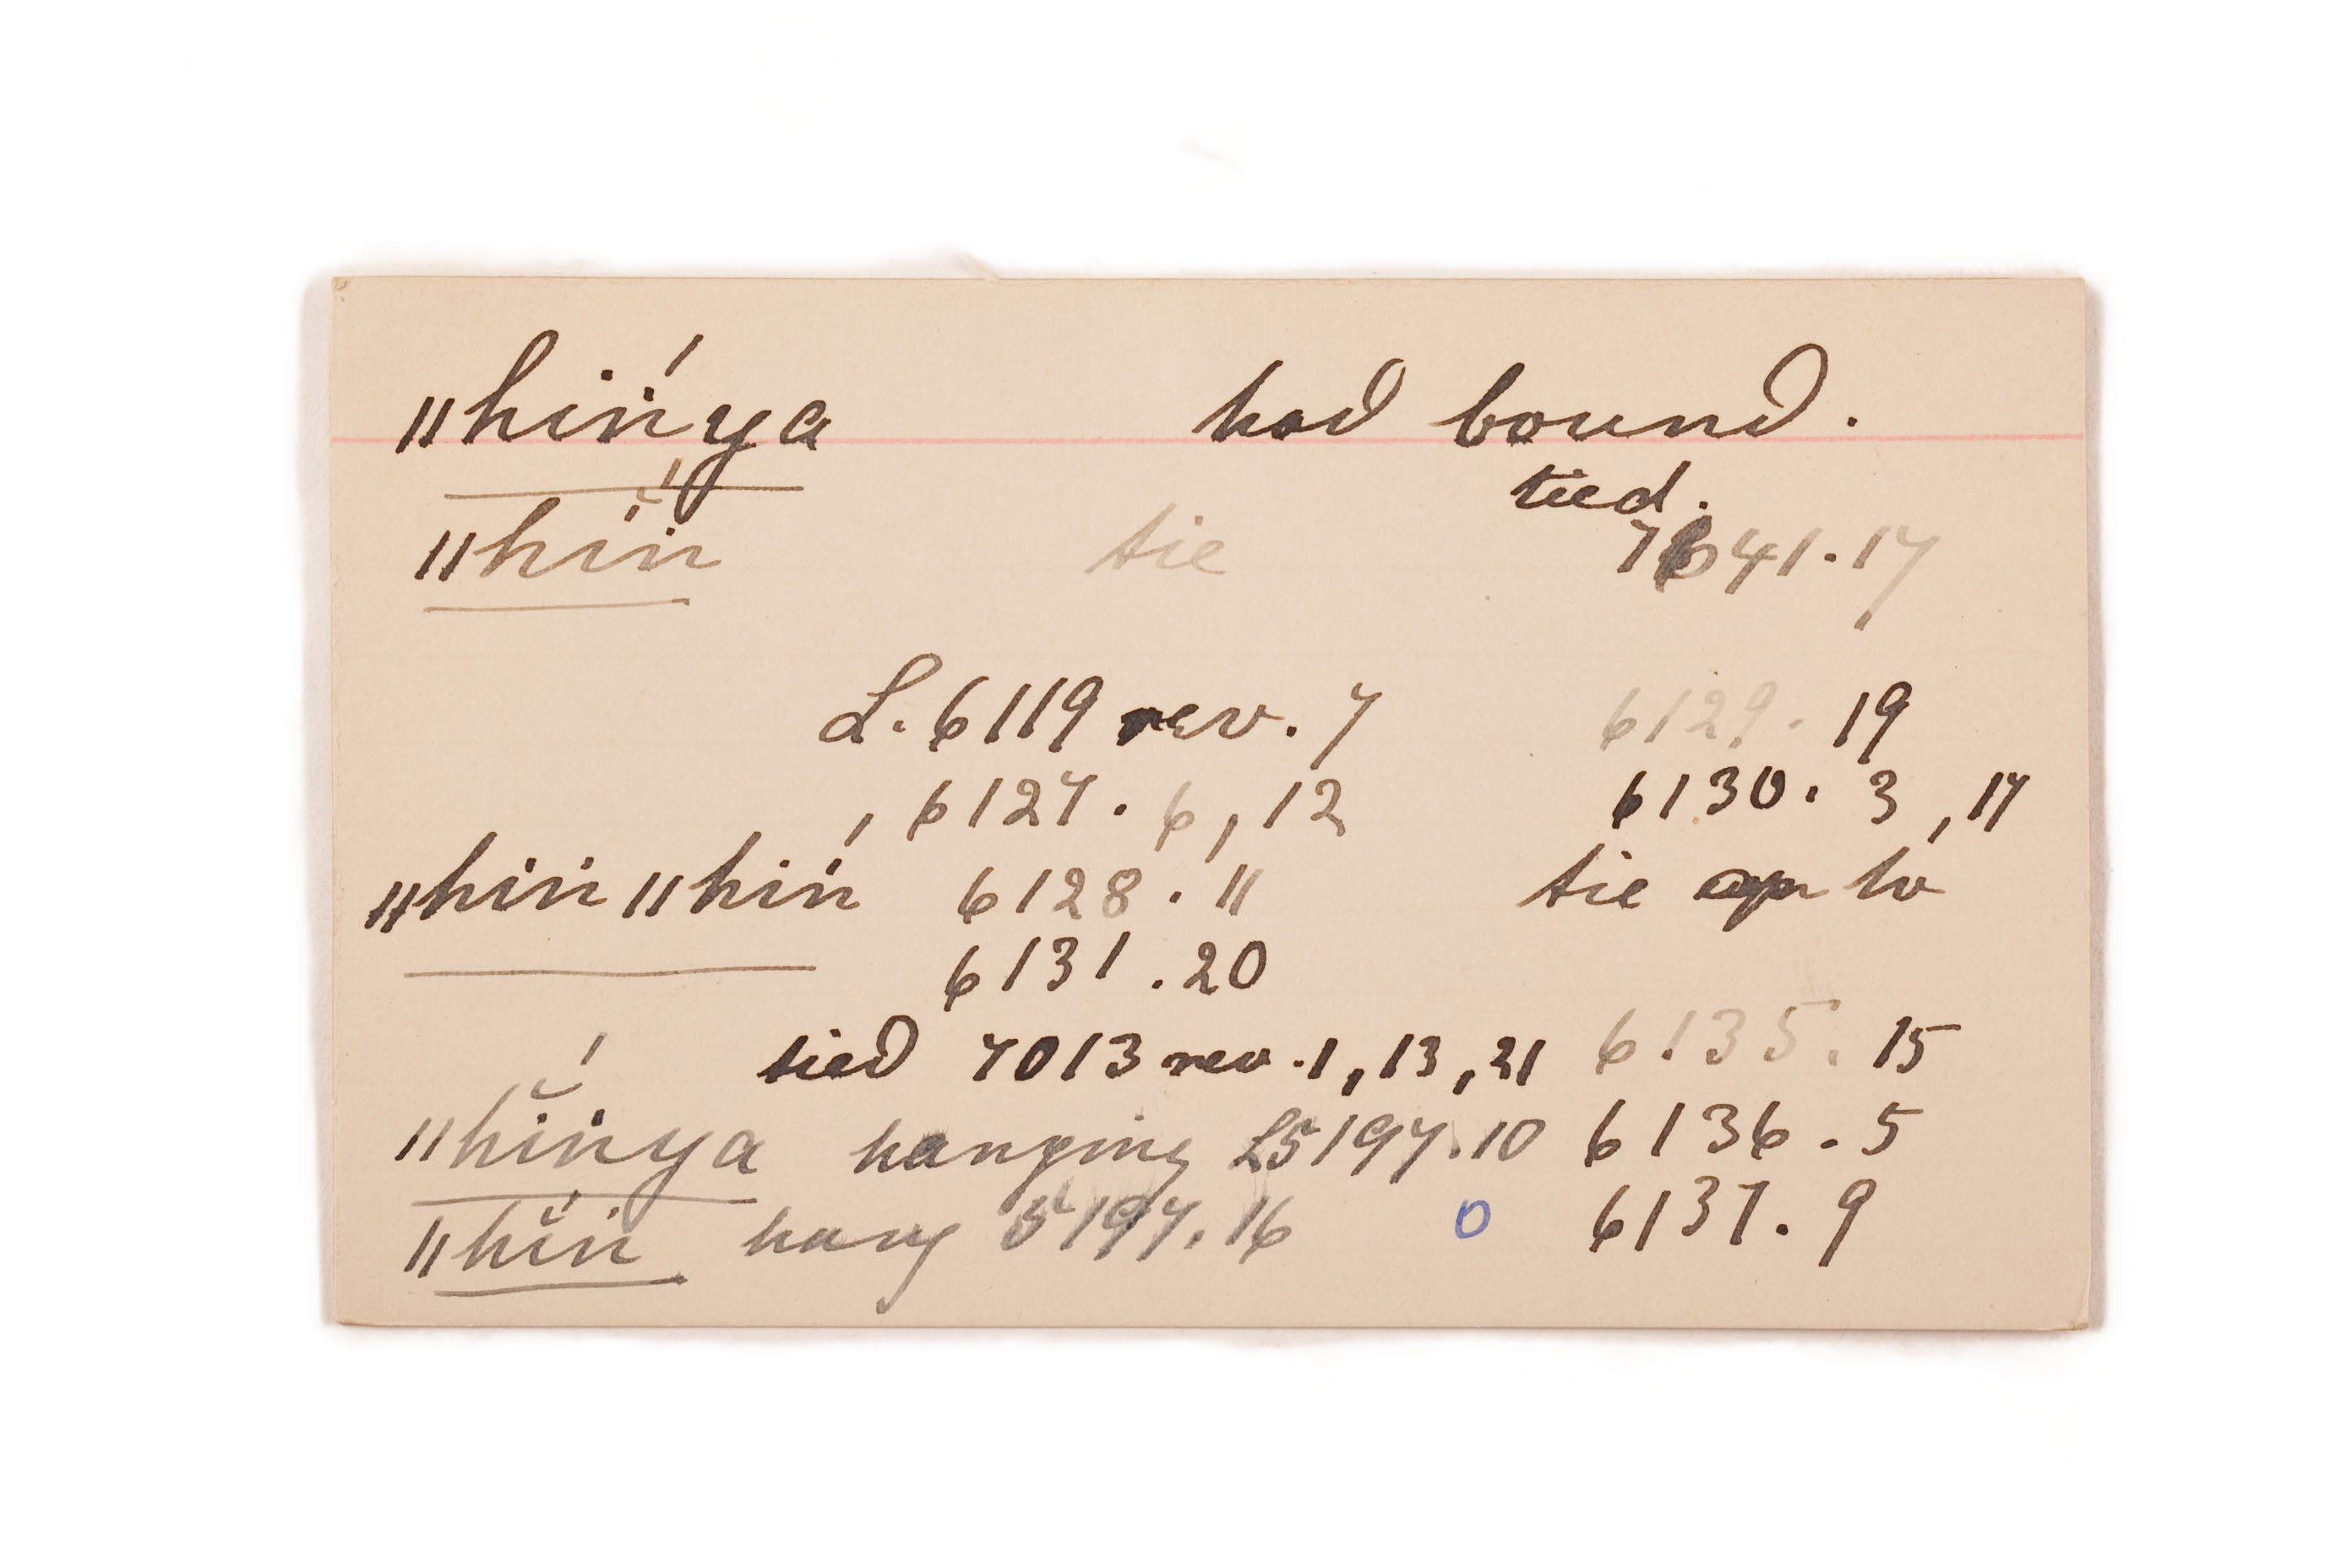 ǁhiṅ́ya had bound.
tied.
ǁhĭṅ́ tie 7641.17
L. 6119 rev. 7 6129. 19
6127. 6, 12 6130. 3, 17
ǁhiṅ ǁhiṅ́ 6128. 11 tie up to
6131. 20
tied 7013 rev. 1, 13, 21 6135. 15
ǁhĭṅ́ya hanging L5197. 10 6136. 5
ǁhĭṅ́ hang 5197. 16 0 6137. 9